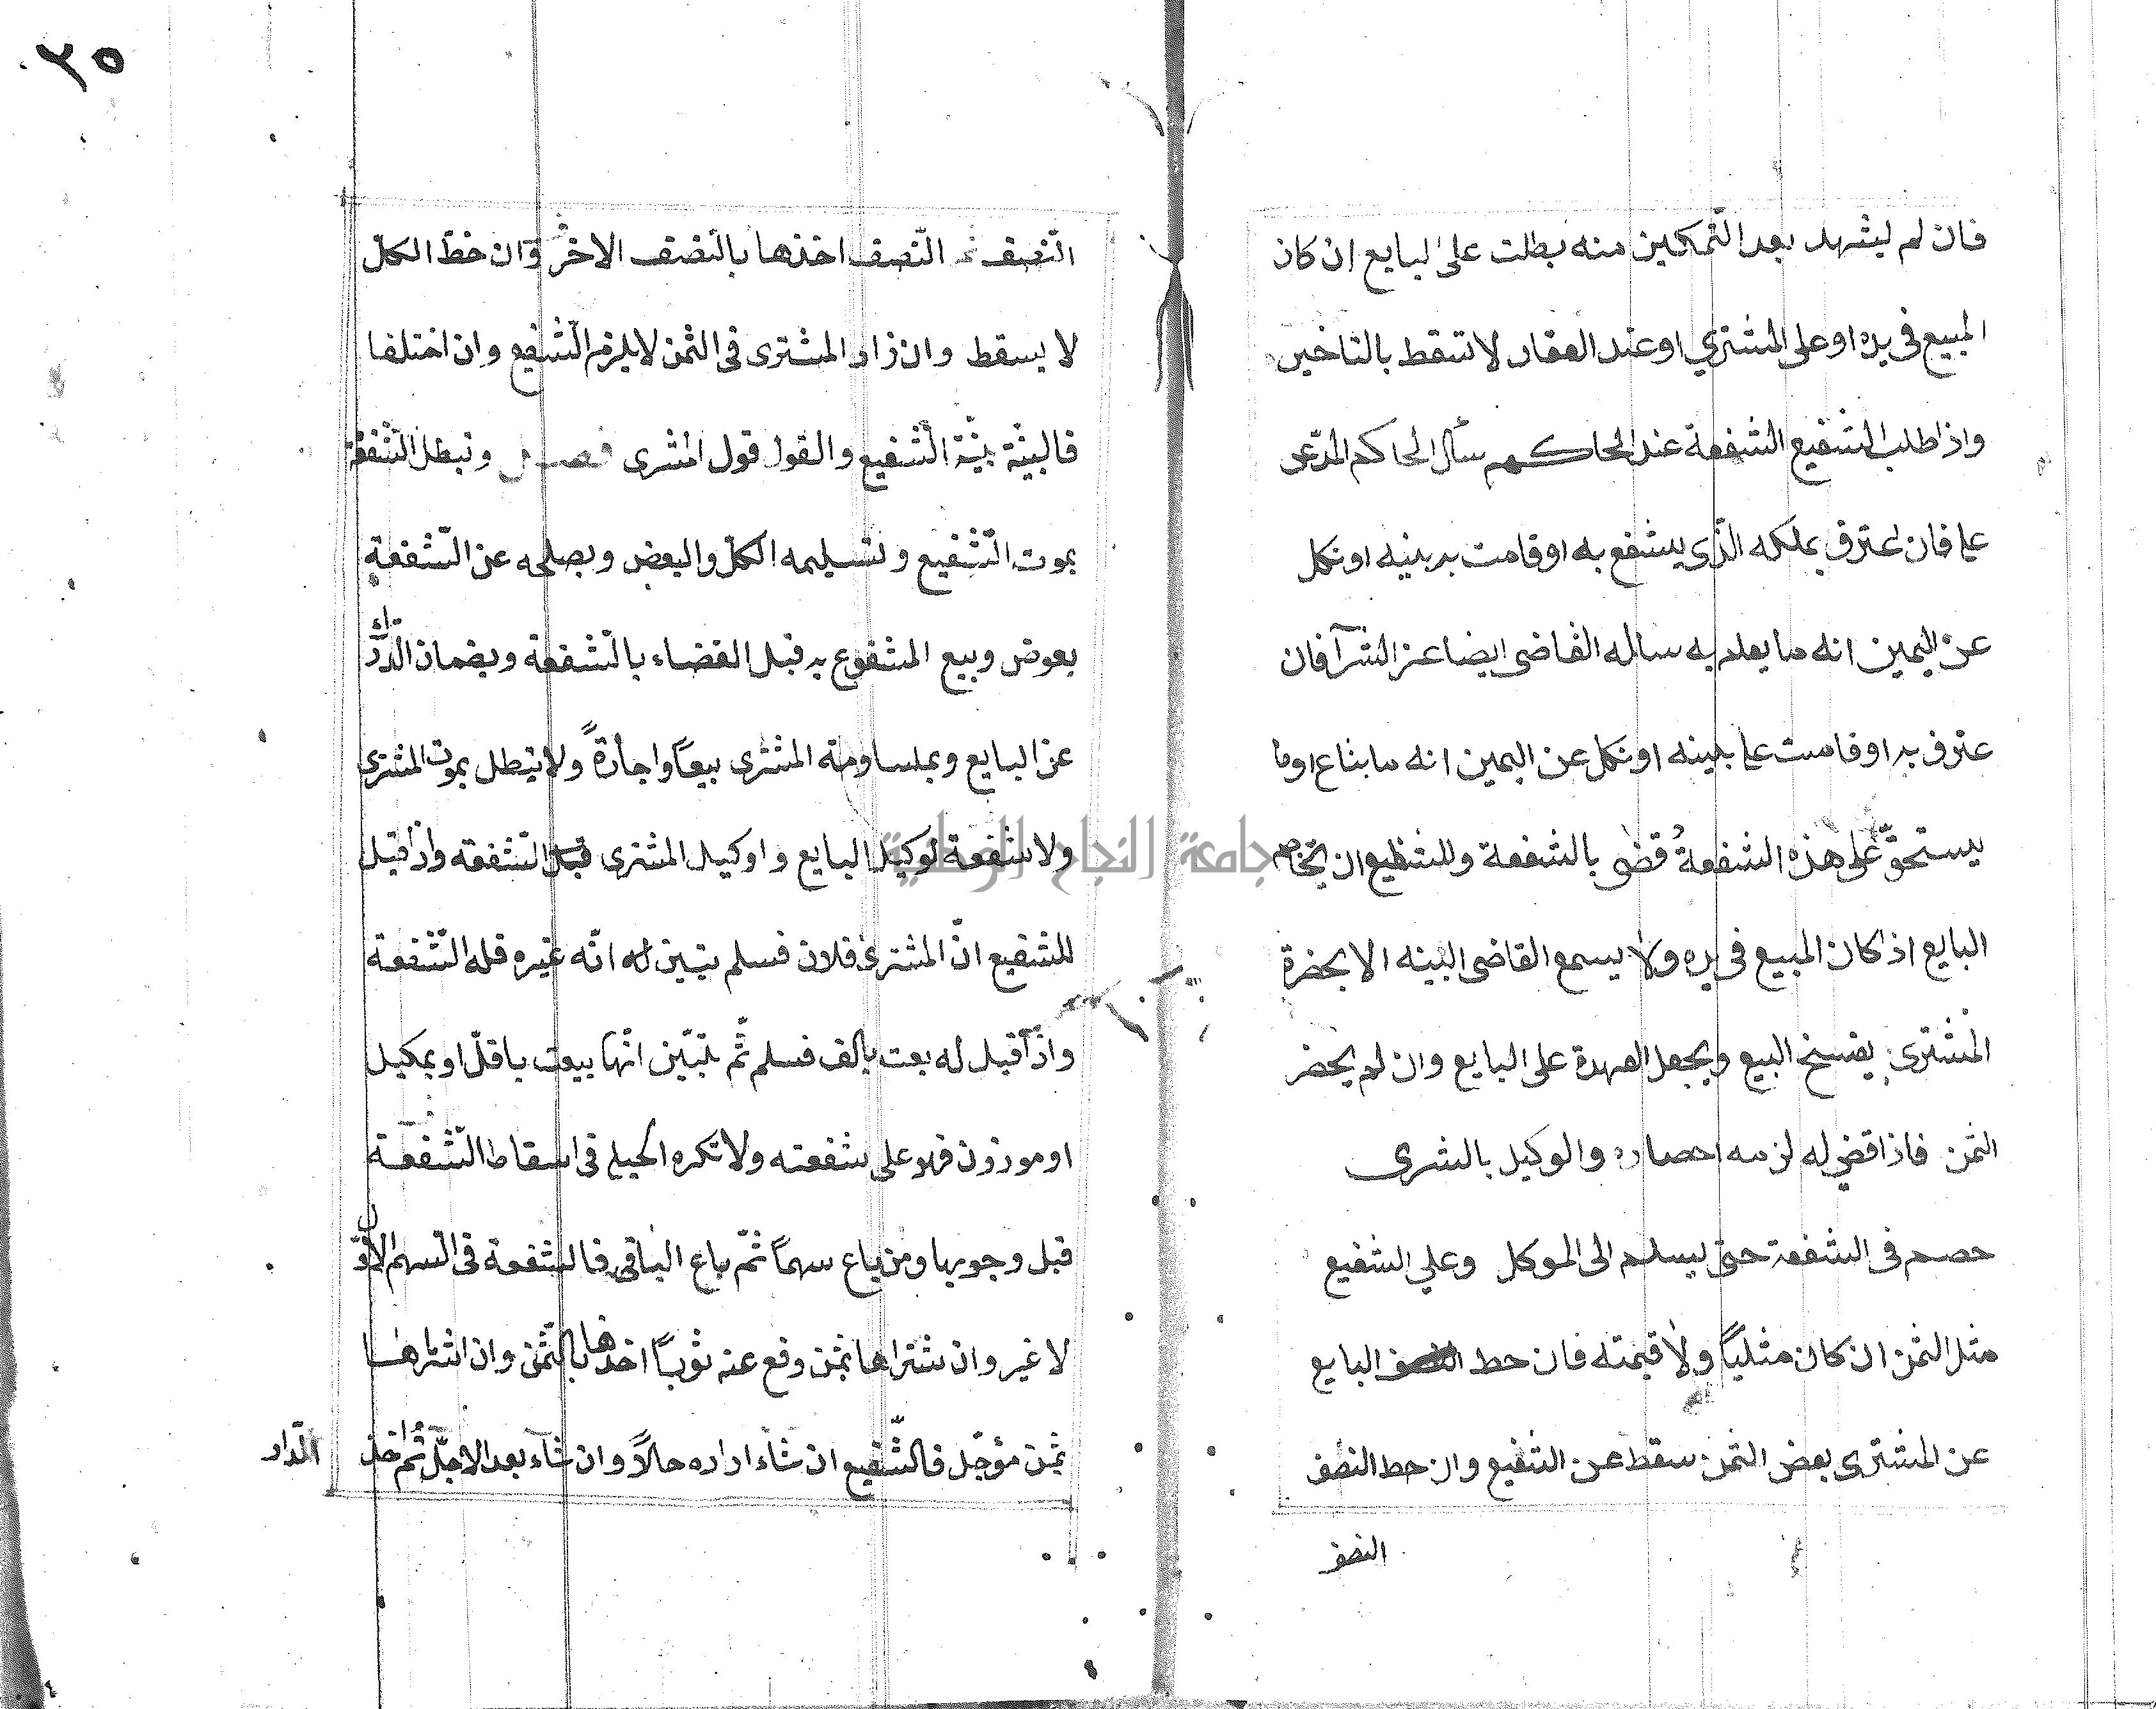 ٣٥
فان لم يشهد بعد التّمكين منه بطلت على البايع ان كان
المبيع في يده او على المشتري او عند العقار لا تسقط بالتاخير
واذا طلب الشفيع الشفعة عند الحاكم سأل الحاكم المدّعى
عليه فان اعترف بملكه الّذى يشفع به او قامت به بينه او نكل
عن اليمين انه ما يعلم به ساله القاضى ايضا عن الشرآ فان
عترف به او قامت عليه بينه او نكل عن اليمين انه ما بتاع او ما
يستحقّ على هذه الشفعة قضى بالشفعة وللشفيع ان يخاصم
البايع اذ كان المبيع في يده ولا يسمع القاضى البينه الا بحضرة
المشترى يفسخ البيع ويجعل العهدة على البايع وان لم يحضر
الثمن فاذا قضى له لزمه احضاره والوكيل بالشرى
خصم فى الشفعة حتى يسلم الى الموكل وعلى الشفيع
مثل الثمن ان كان مثلياً ولا قيمته فان حط البايع
عن المشترى بعض الثمن سقط عن الشفيع وان حط النصف
النصف
النّصف ثم النّصف اخذها بالنصف الاخر وان حطّ الكلّ
لا يسقط وان زاد المشترى فى الثمن لا يلزم الشّفيع وان اختلفا
فالبيّنة بيّنة الشّفيع والقول قول المشرى فصل وتبطل الشّفعة
بموت الشّفيع وتسليمه الكلّ والبعض وبصلحه عن الشّفعة
بعوض وبيع المشفوع به قبل القضاء بالشّفعة وبضمان الدّرك
عن البايع وبمساومته المشترى بيعاً واجارةً ولا تبطل بموت المشترى
ولا شفعة لوكيل البايع واوكيل المشترى قبل الشفعه واذا قيل
للشفيع انّ المشترى فلان فسلم تبين له انّه غيره فله الشّفعة
واذآ قيل له بعت بالف فسلم ثمّ تبيّن انّها بيعت باقلّ او بمكيل
او موزون فهو على شفعته ولا تكره الحيله فى اسقاط الشّفعة
قبل وجوبها ومن باع سهماً ثمّ باع الباقى فالشفعة فى السهم الاوّل
لا غير وان شتراها بثمن وقع عنه ثوباً اخذها بالثّمن وان اشتراها
بثمن مؤجّل فالشّفيع ان شاء اداه حالاً وان شآء بعد الاجل ثم اخذ
الدّار
جامعة النجاح الوطنية